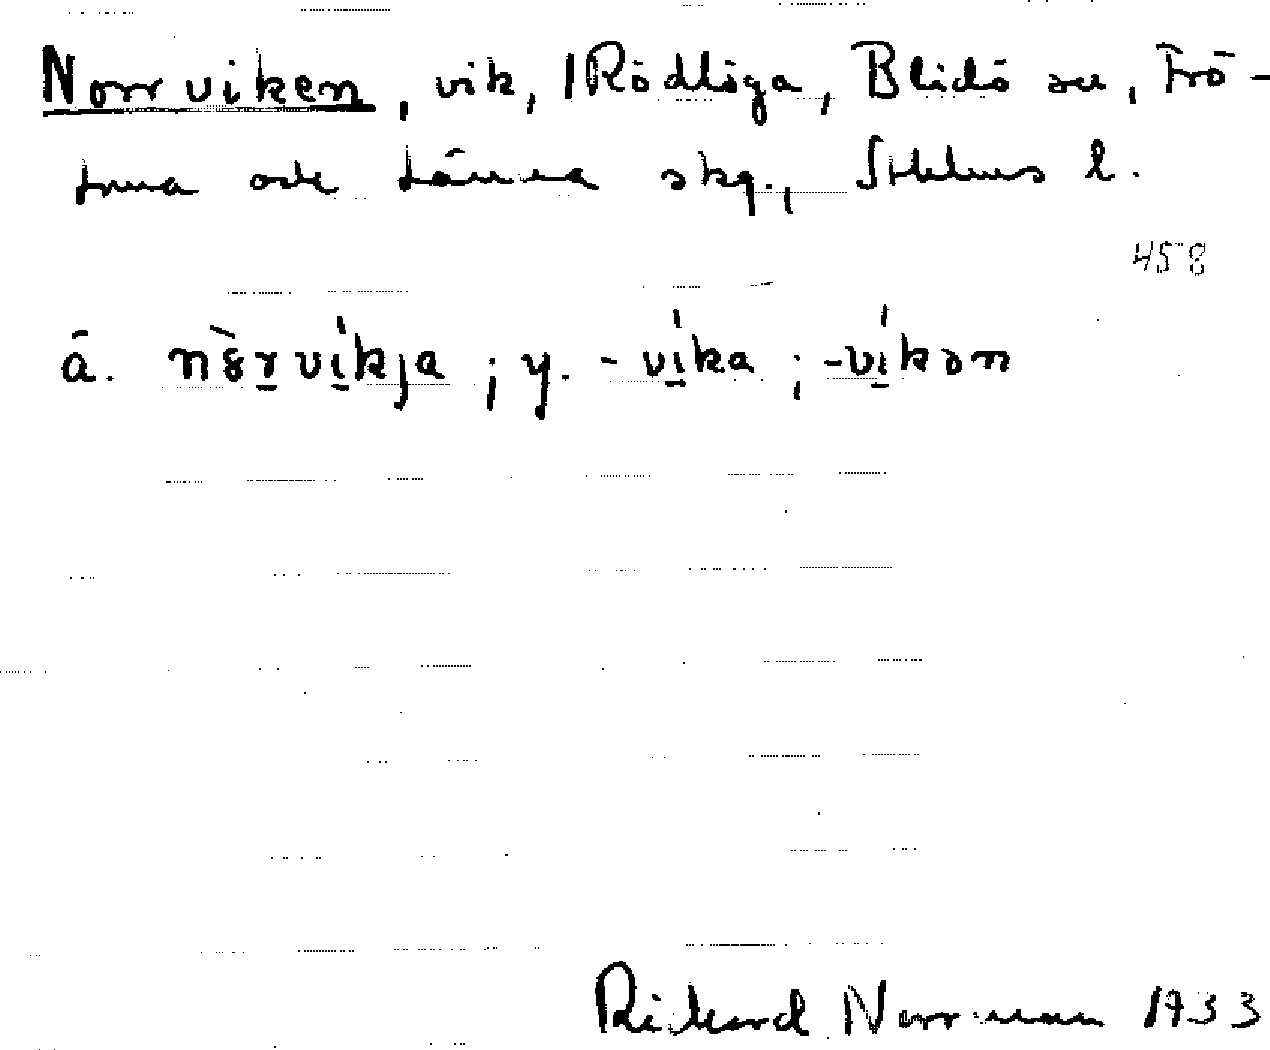 Norrviken, vik, 1 Rödlöga, Blidö sn, Frö-
tuna och Länna skg., Sthlms l.
458
å. nòrvíkja ; y. -víka ; -víkən
Rickard Norrman 1933